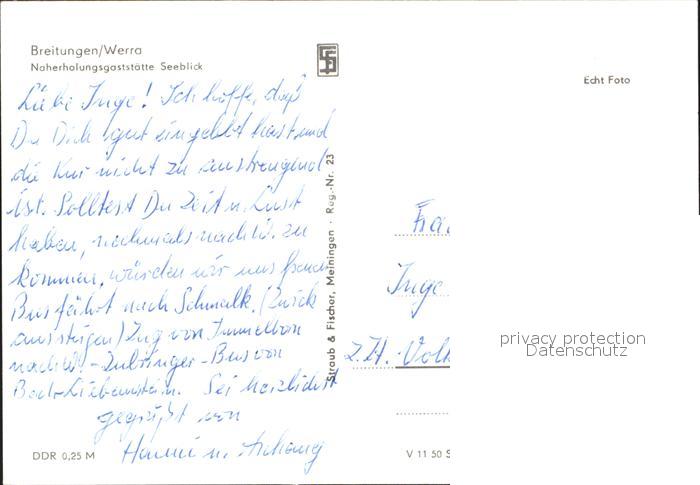 Breitungen/Werra
Naherholungsgaststätte Seeblick
Echt Foto
Liebe Inge! Ich hoffe, daß
Du Dich gut eingelebt hast und
die Kur nicht zu anstrengend
ist. Solltest Du Zeit u. Lust
haben, nochmals nach W. zu
kommen, würden wir uns freuen
Bus fährt nach Schmalk. (Zurück
aussteigen) Zug von Immelborn
nach W. - Zubringer - Bus von
Bad-Liebenstein. Sei herzlichst
gegrüßt von
Hanni u.
Straub & Fischer, Meiningen · Reg.-Nr. 23
Fra
Inge
z. Zt. Volk
privacy protection
Datenschutz
DDR 0,25 M
V 11 50 S